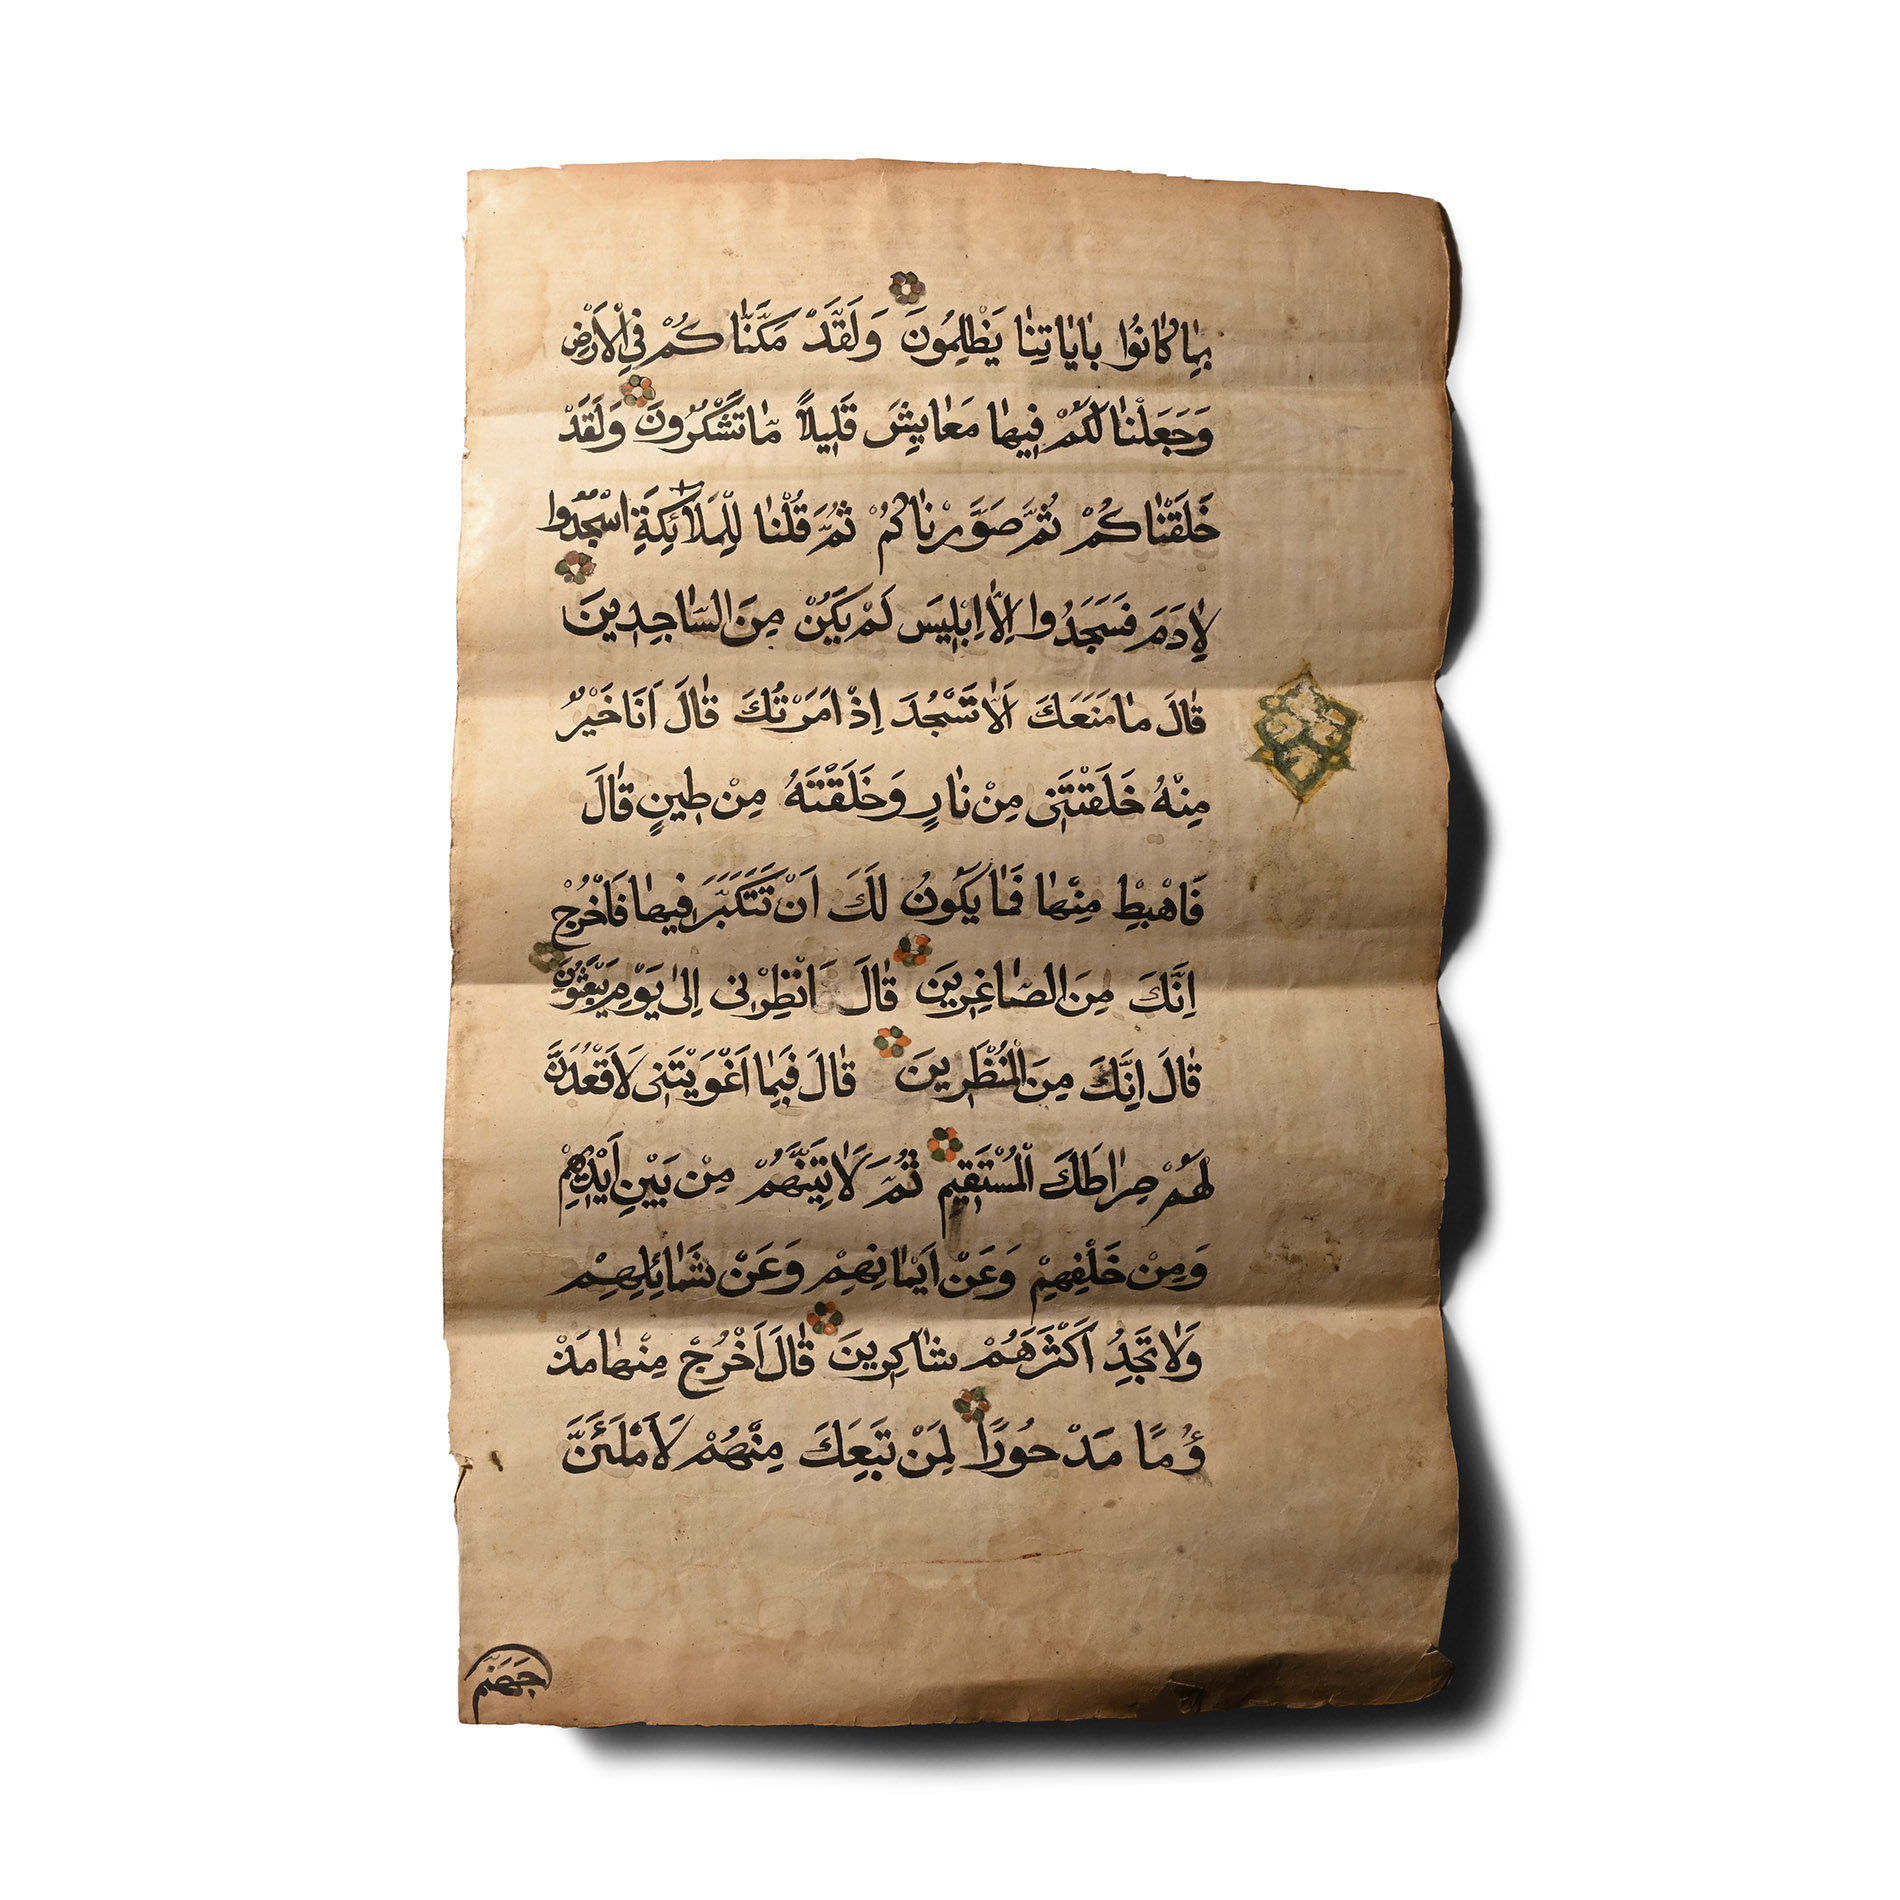 بِمَا كَانُوا بِاٰيَاتِنَا يَظْلِمُونَ وَلَقَدْ مَكَّنَّاكُمْ فِى الْاَرْضِ
وَجَعَلْنَا لَكُمْ فِيهَا مَعَايِشَ قَلِيلًا مَا تَشْكُرُونَ وَلَقَدْ
خَلَقْنَاكُمْ ثُمَّ صَوَّرْنَاكُمْ ثُمَّ قُلْنَا لِلْمَلَآئِكَةِ اسْجُدُوا
لِاٰدَمَ فَسَجَدُوا اِلَّا اِبْلِيسَ لَمْ يَكُنْ مِنَ السَّاجِدِينَ
قَالَ مَا مَنَعَكَ اَلَّا تَسْجُدَ اِذْ اَمَرْتُكَ قَالَ اَنَا خَيْرٌ
مِنْهُ خَلَقْتَنِى مِنْ نَارٍ وَخَلَقْتَهُ مِنْ طِينٍ قَالَ
فَاهْبِطْ مِنْهَا فَمَا يَكُونُ لَكَ اَنْ تَتَكَبَّرَ فِيهَا فَاخْرُجْ
اِنَّكَ مِنَ الصَّاغِرِينَ قَالَ اَنْظِرْنِى اِلٰى يَوْمِ يُبْعَثُونَ
قَالَ اِنَّكَ مِنَ الْمُنْظَرِينَ قَالَ فَبِمَا اَغْوَيْتَنِى لَاَقْعُدَنَّ
لَهُمْ صِرَاطَكَ الْمُسْتَقِيمَ ثُمَّ لَاٰتِيَنَّهُمْ مِنْ بَيْنِ اَيْدِيهِمْ
وَمِنْ خَلْفِهِمْ وَعَنْ اَيْمَانِهِمْ وَعَنْ شَمَائِلِهِمْ
وَلَا تَجِدُ اَكْثَرَهُمْ شَاكِرِينَ قَالَ اخْرُجْ مِنْهَا مَذْ
ؤُمًا مَدْحُورًا لَمَنْ تَبِعَكَ مِنْهُمْ لَاَمْلَئَنَّ
جَهَنَّمَ